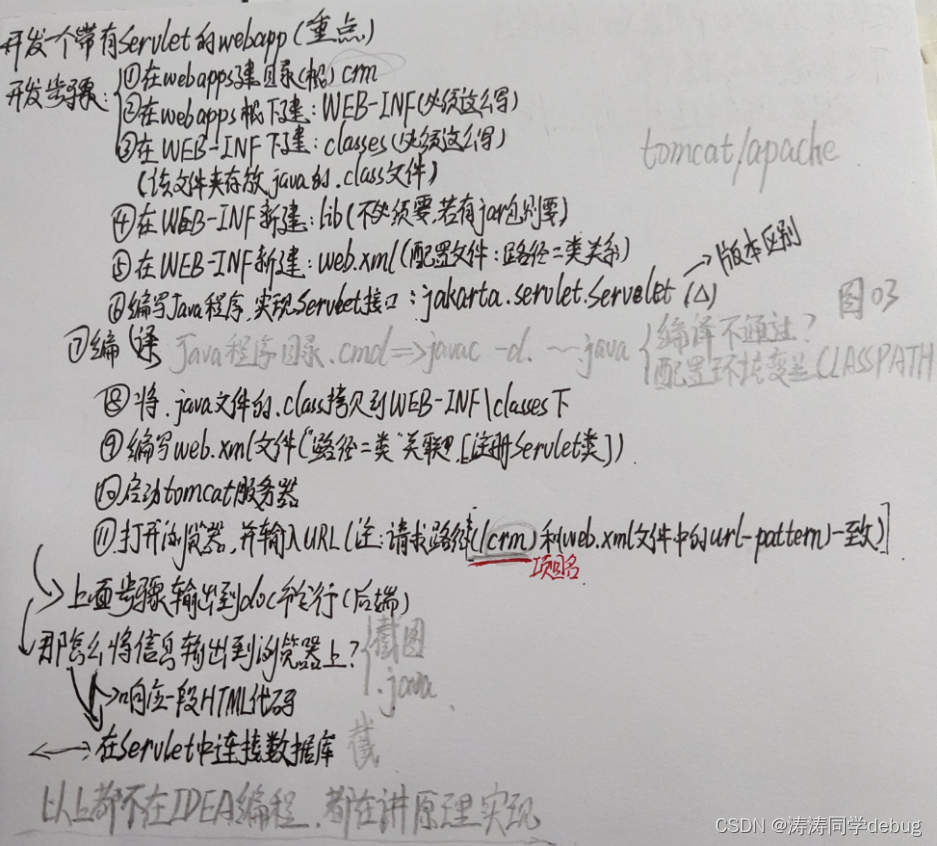 开发一个带有Servlet的webapp(重点)
开发步骤:①在webapps建目录(根)crm
②在webapps根下建:WEB-INF(必须这么写)
③在WEB-INF下建:classes(必须这么写)
(该文件夹存放java的.class文件)
tomcat/apache
④在WEB-INF新建:lib(不必须要,若有jar包则要)
⑤在WEB-INF新建:web.xml(配置文件:路径=类关系)
⑥编写Java程序,实现Servlet接口:jakarta.servlet.Servlet(△)→版本区别
图03
⑦编译 Java程序目录.cmd=>javac -d. ~~java {编译不通过?
配置环境变量CLASSPATH
⑧将.java文件的.class拷贝到WEB-INF\classes下
⑨编写web.xml文件("路径=类"关联,[注册Servlet类])
⑩启动tomcat服务器
⑪打开浏览器,并输入URL(注:请求路径[(/crm)和web.xml文件中的url-pattern)一致)]
项目名
上面步骤输出到dos命令行(后端)
那怎么将信息输出到浏览器上?{截图
.java
响应一段HTML代码
在Servlet中连接数据库 截
以上都不在IDEA编程,都在讲原理实现
CSDN @涛涛同学debug